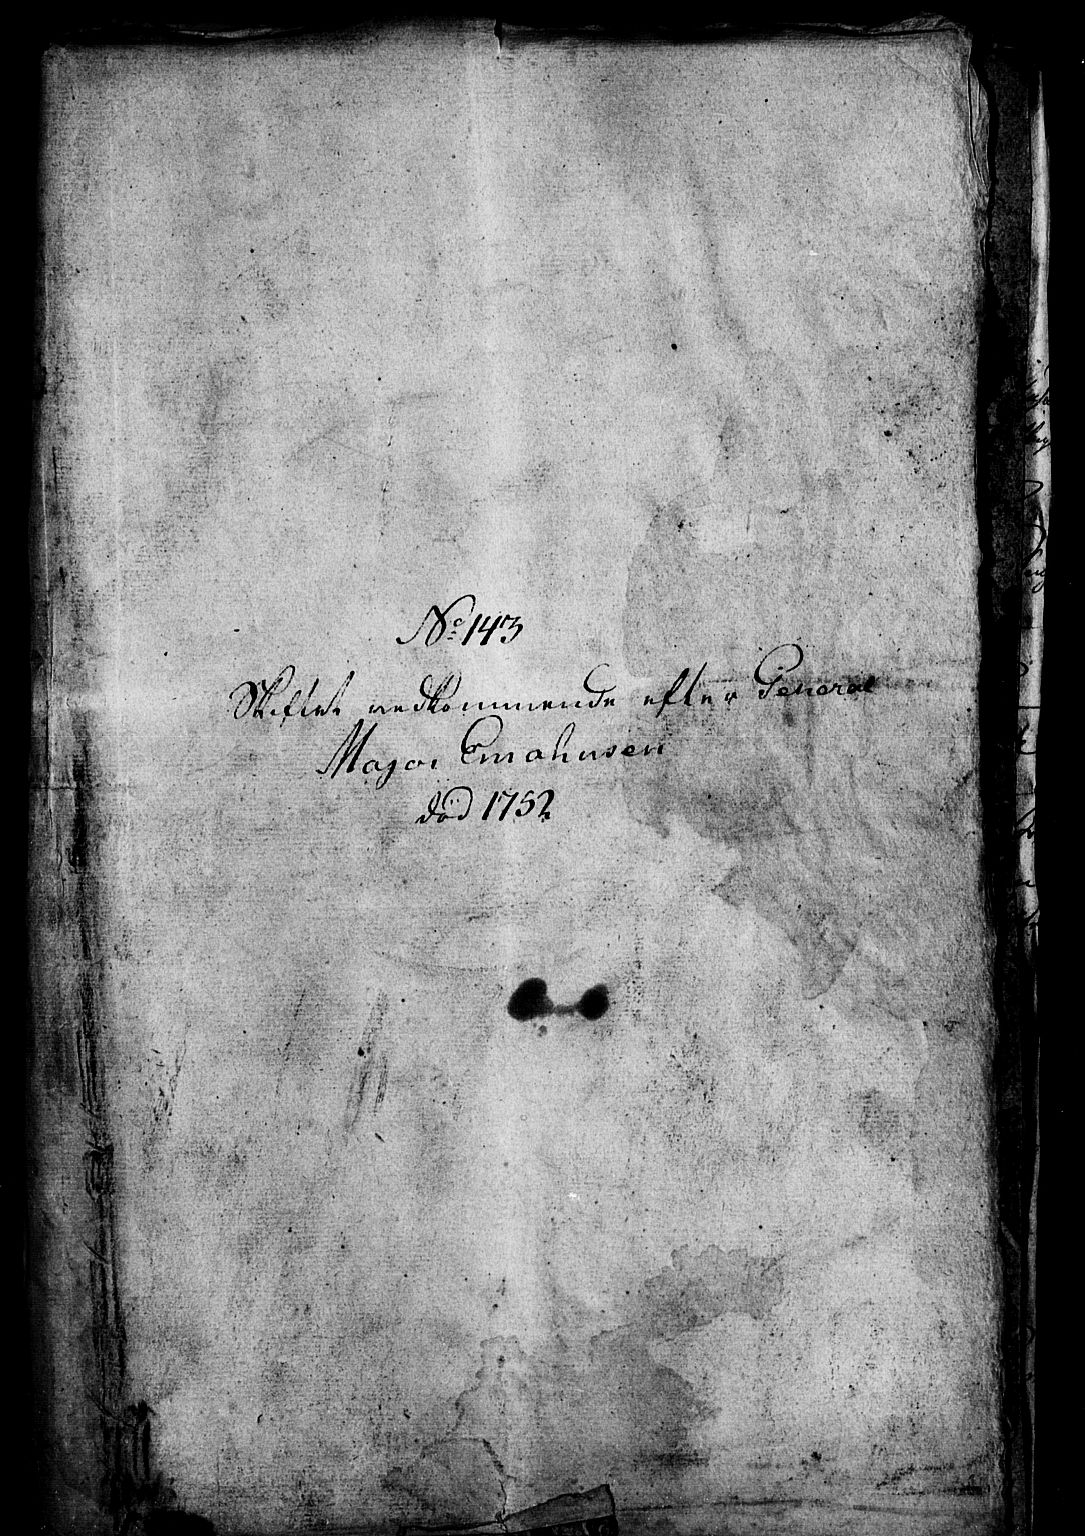 No 143
Skiftet vedkommende efter General
Major Emahusen
död 1752